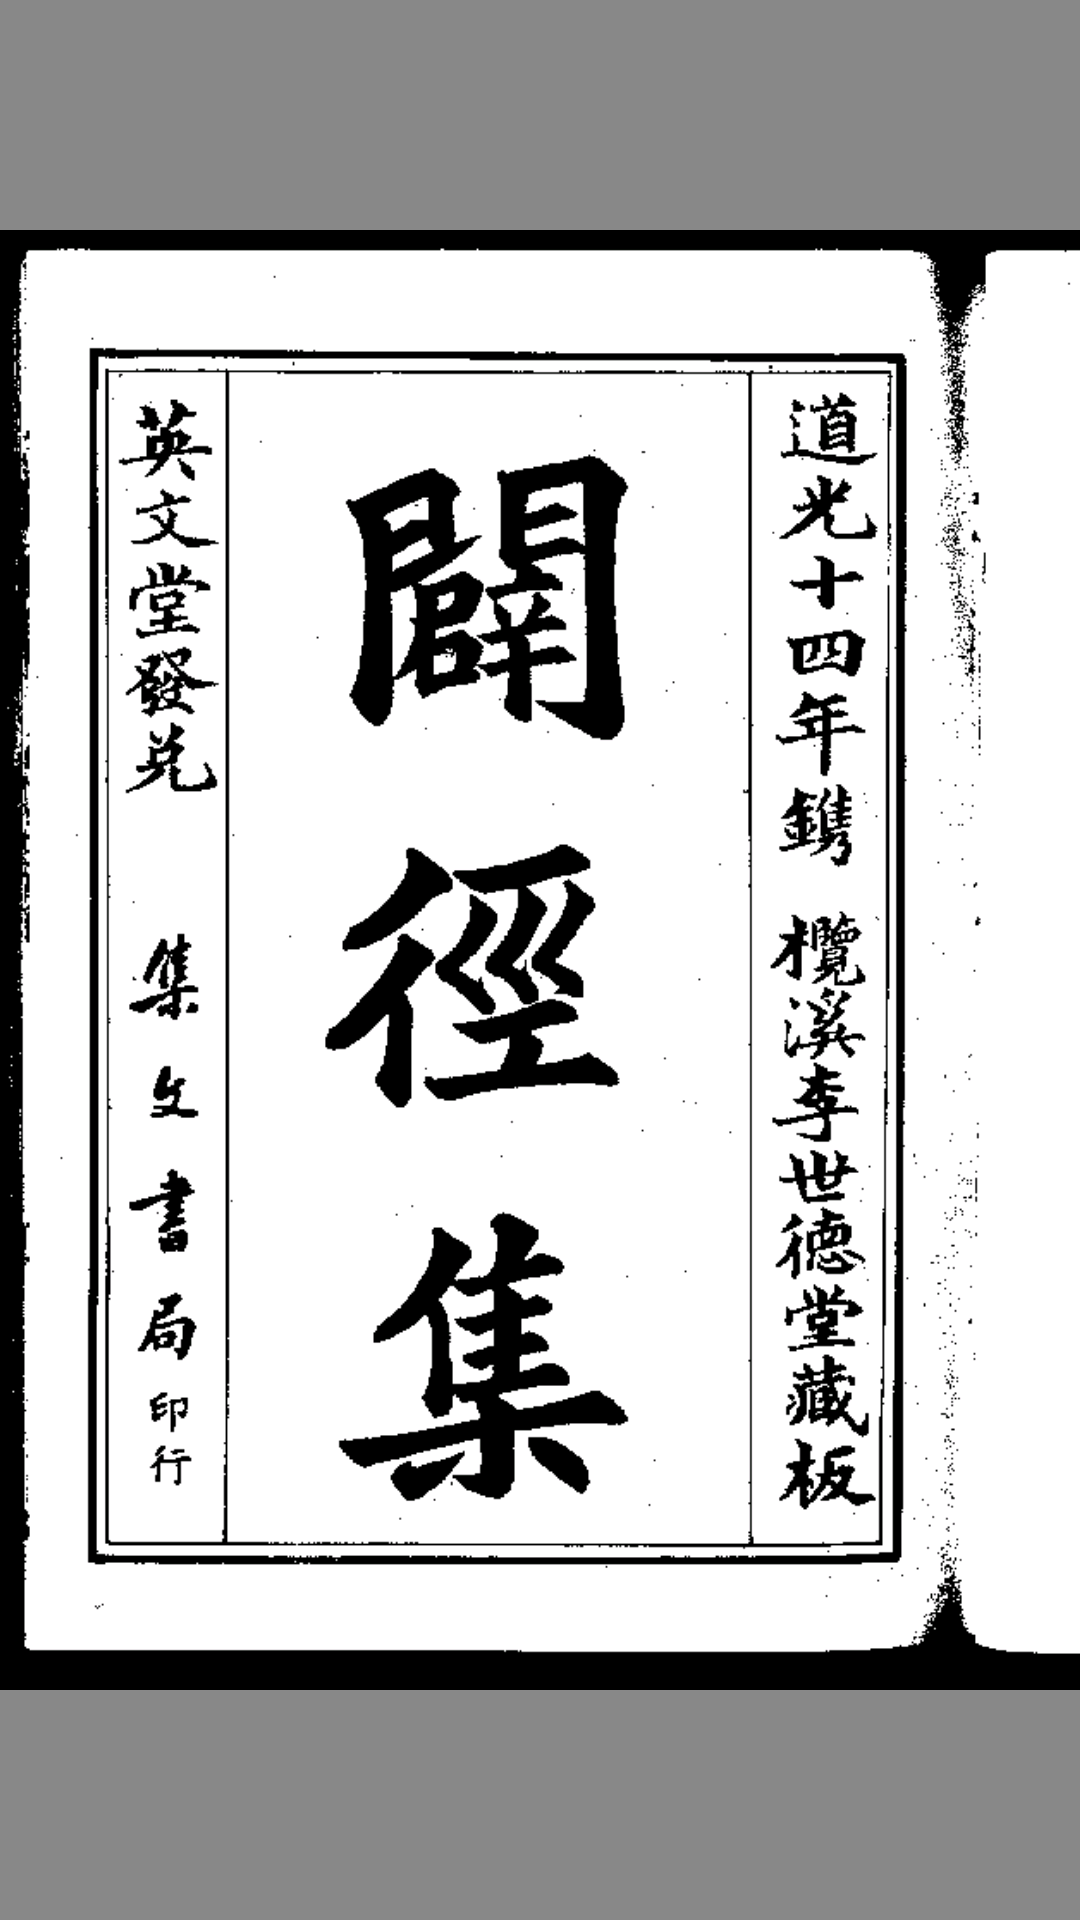 道光十四年鐫 欖溪李世德堂藏板
闢徑集
英文堂發兌 集文書局印行